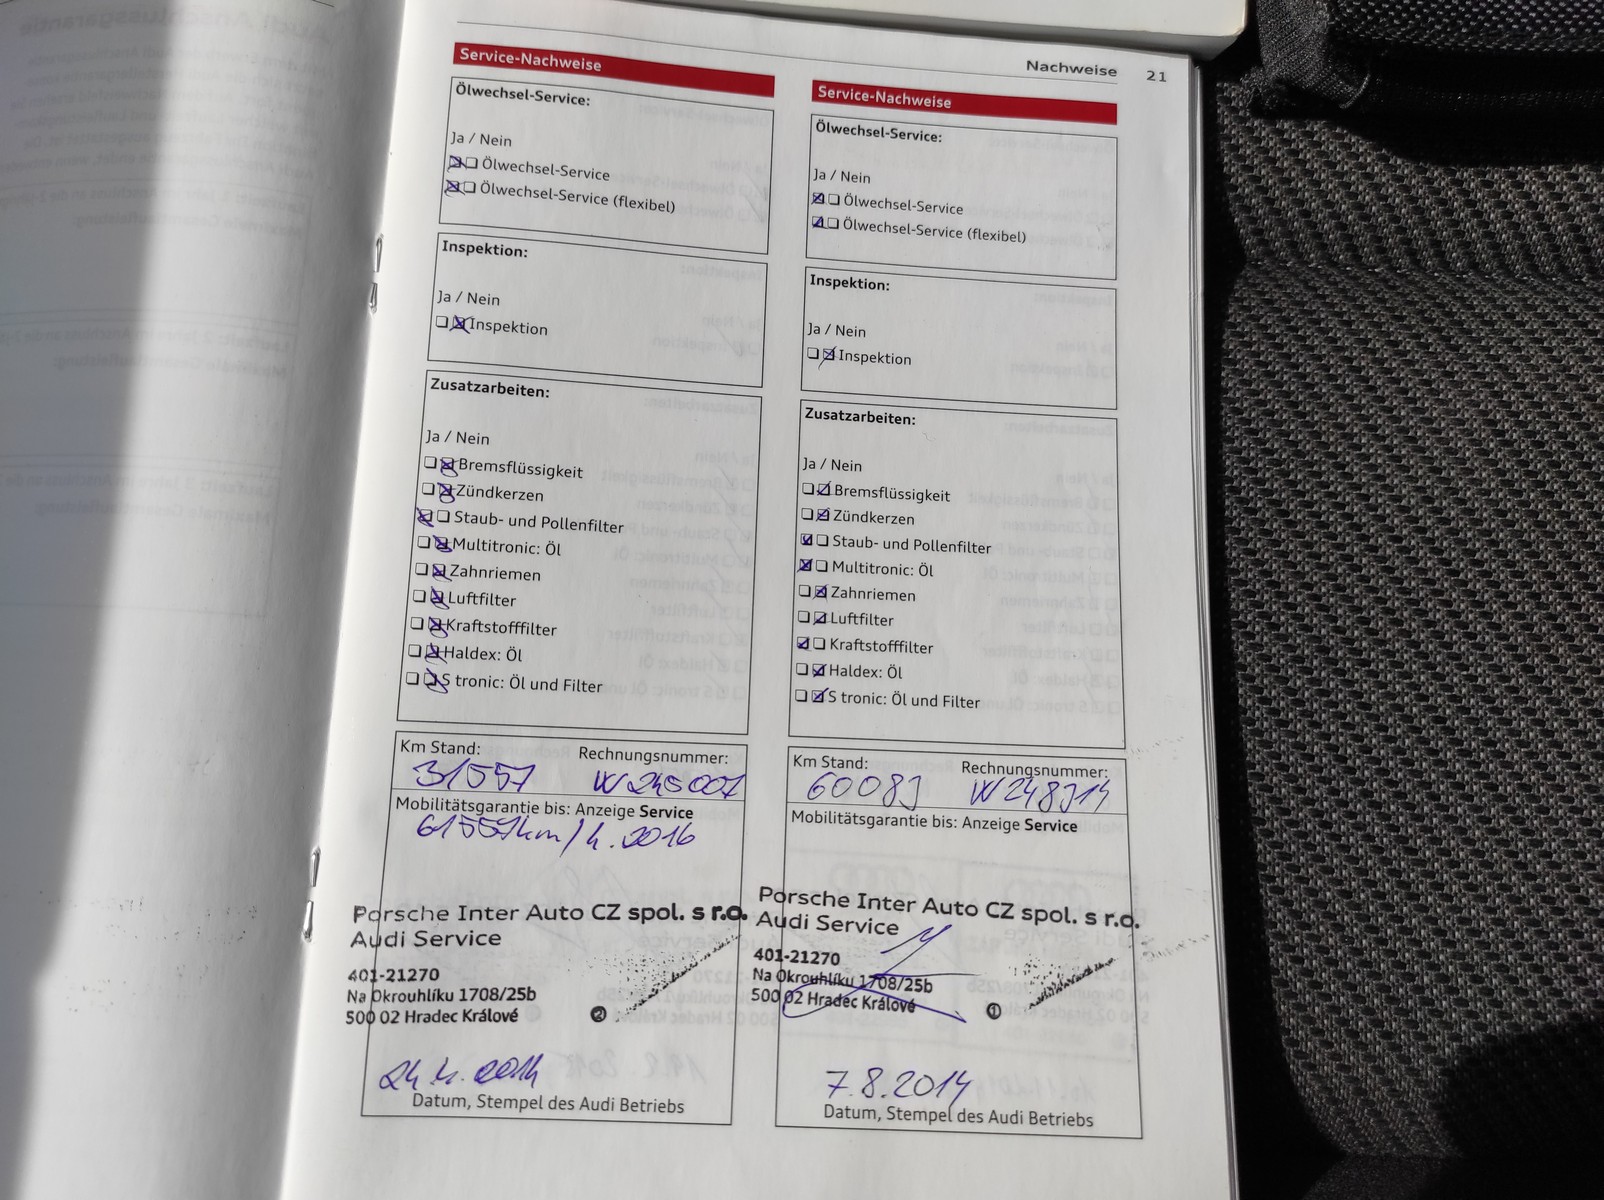 Nachweise 21
Service-Nachweise
Ölwechsel-Service:
Ja / Nein
Ölwechsel-Service
Ölwechsel-Service (flexibel)
Inspektion:
Ja / Nein
Inspektion
Zusatzarbeiten:
Ja / Nein
Bremsflüssigkeit
Zündkerzen
Staub- und Pollenfilter
Multitronic: Öl
Zahnriemen
Luftfilter
Kraftstofffilter
Haldex: Öl
S tronic: Öl und Filter
Km Stand: Rechnungsnummer:
31557 W245007
Mobilitätsgarantie bis: Anzeige Service
61557km/4.2016
Porsche Inter Auto CZ spol. s r.o.
Audi Service
401-21270
Na Okrouhlíku 1708/25b
500 02 Hradec Králové 2
24.4.2014
Datum, Stempel des Audi Betriebs
Service-Nachweise
Ölwechsel-Service:
Ja / Nein
Ölwechsel-Service
Ölwechsel-Service (flexibel)
Inspektion:
Ja / Nein
Inspektion
Zusatzarbeiten:
Ja / Nein
Bremsflüssigkeit
Zündkerzen
Staub- und Pollenfilter
Multitronic: Öl
Zahnriemen
Luftfilter
Kraftstofffilter
Haldex: Öl
S tronic: Öl und Filter
Km Stand: Rechnungsnummer:
Mobilitätsgarantie bis: Anzeige Service
Porsche Inter Auto CZ spol. s r.o.
Audi Service
401-21270
Na Okrouhlíku 1708/25b
500 02 Hradec Králové 1
7.8.2014
Datum, Stempel des Audi Betriebs